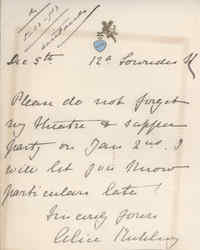 Dec 5th 12A Lowndes St
Please do not forget
my theatre & supper
party on Jan 2nd. I
will let you know
particulars later!
Sincerely yours
Alice